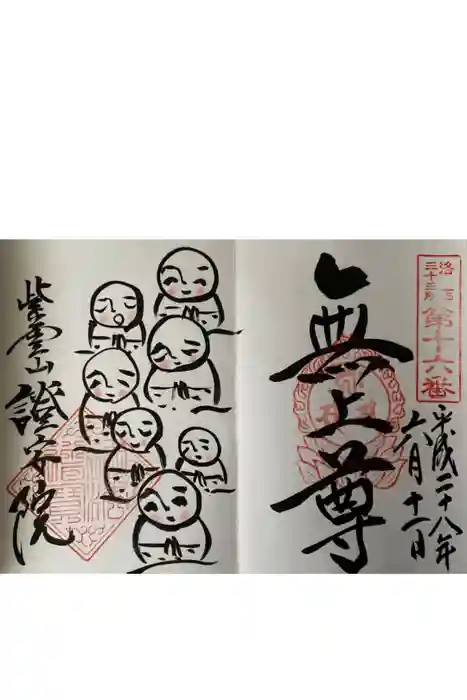 洛西
三十三所
第十六番
平成二十八年
六月十一日
無上尊
紫雲山 證安院